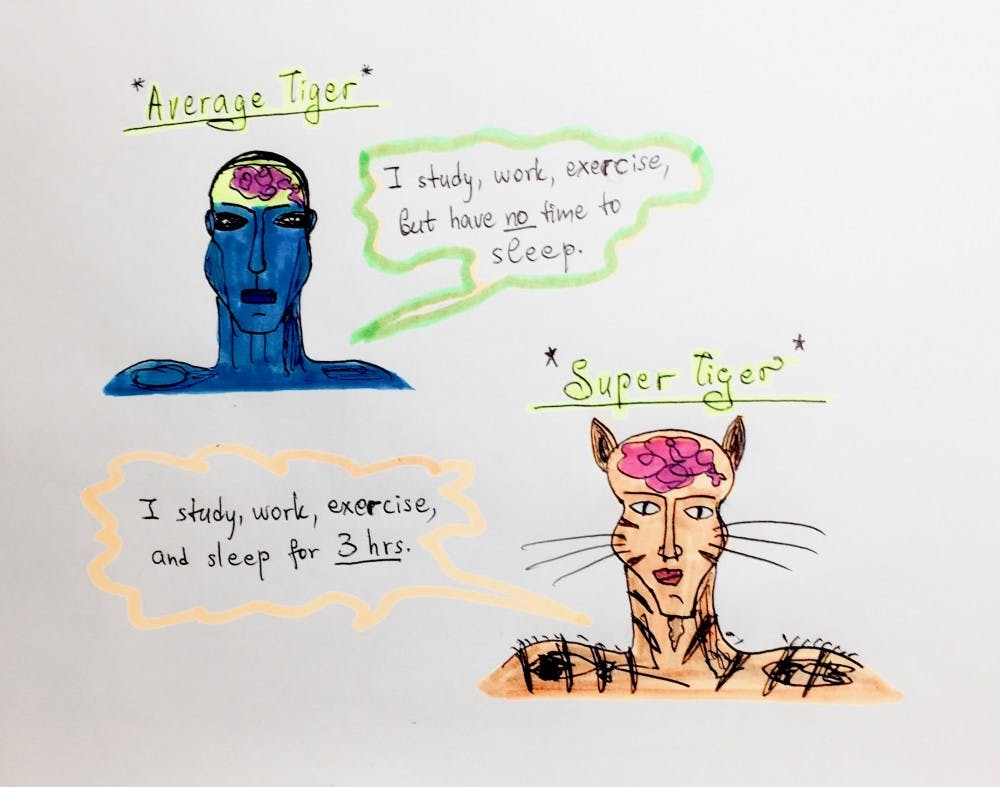 *Average Tiger*
I study, work, exercise,
But have no time to
sleep.
*Super Tiger*
I study, work, exercise,
and sleep for 3 hrs.